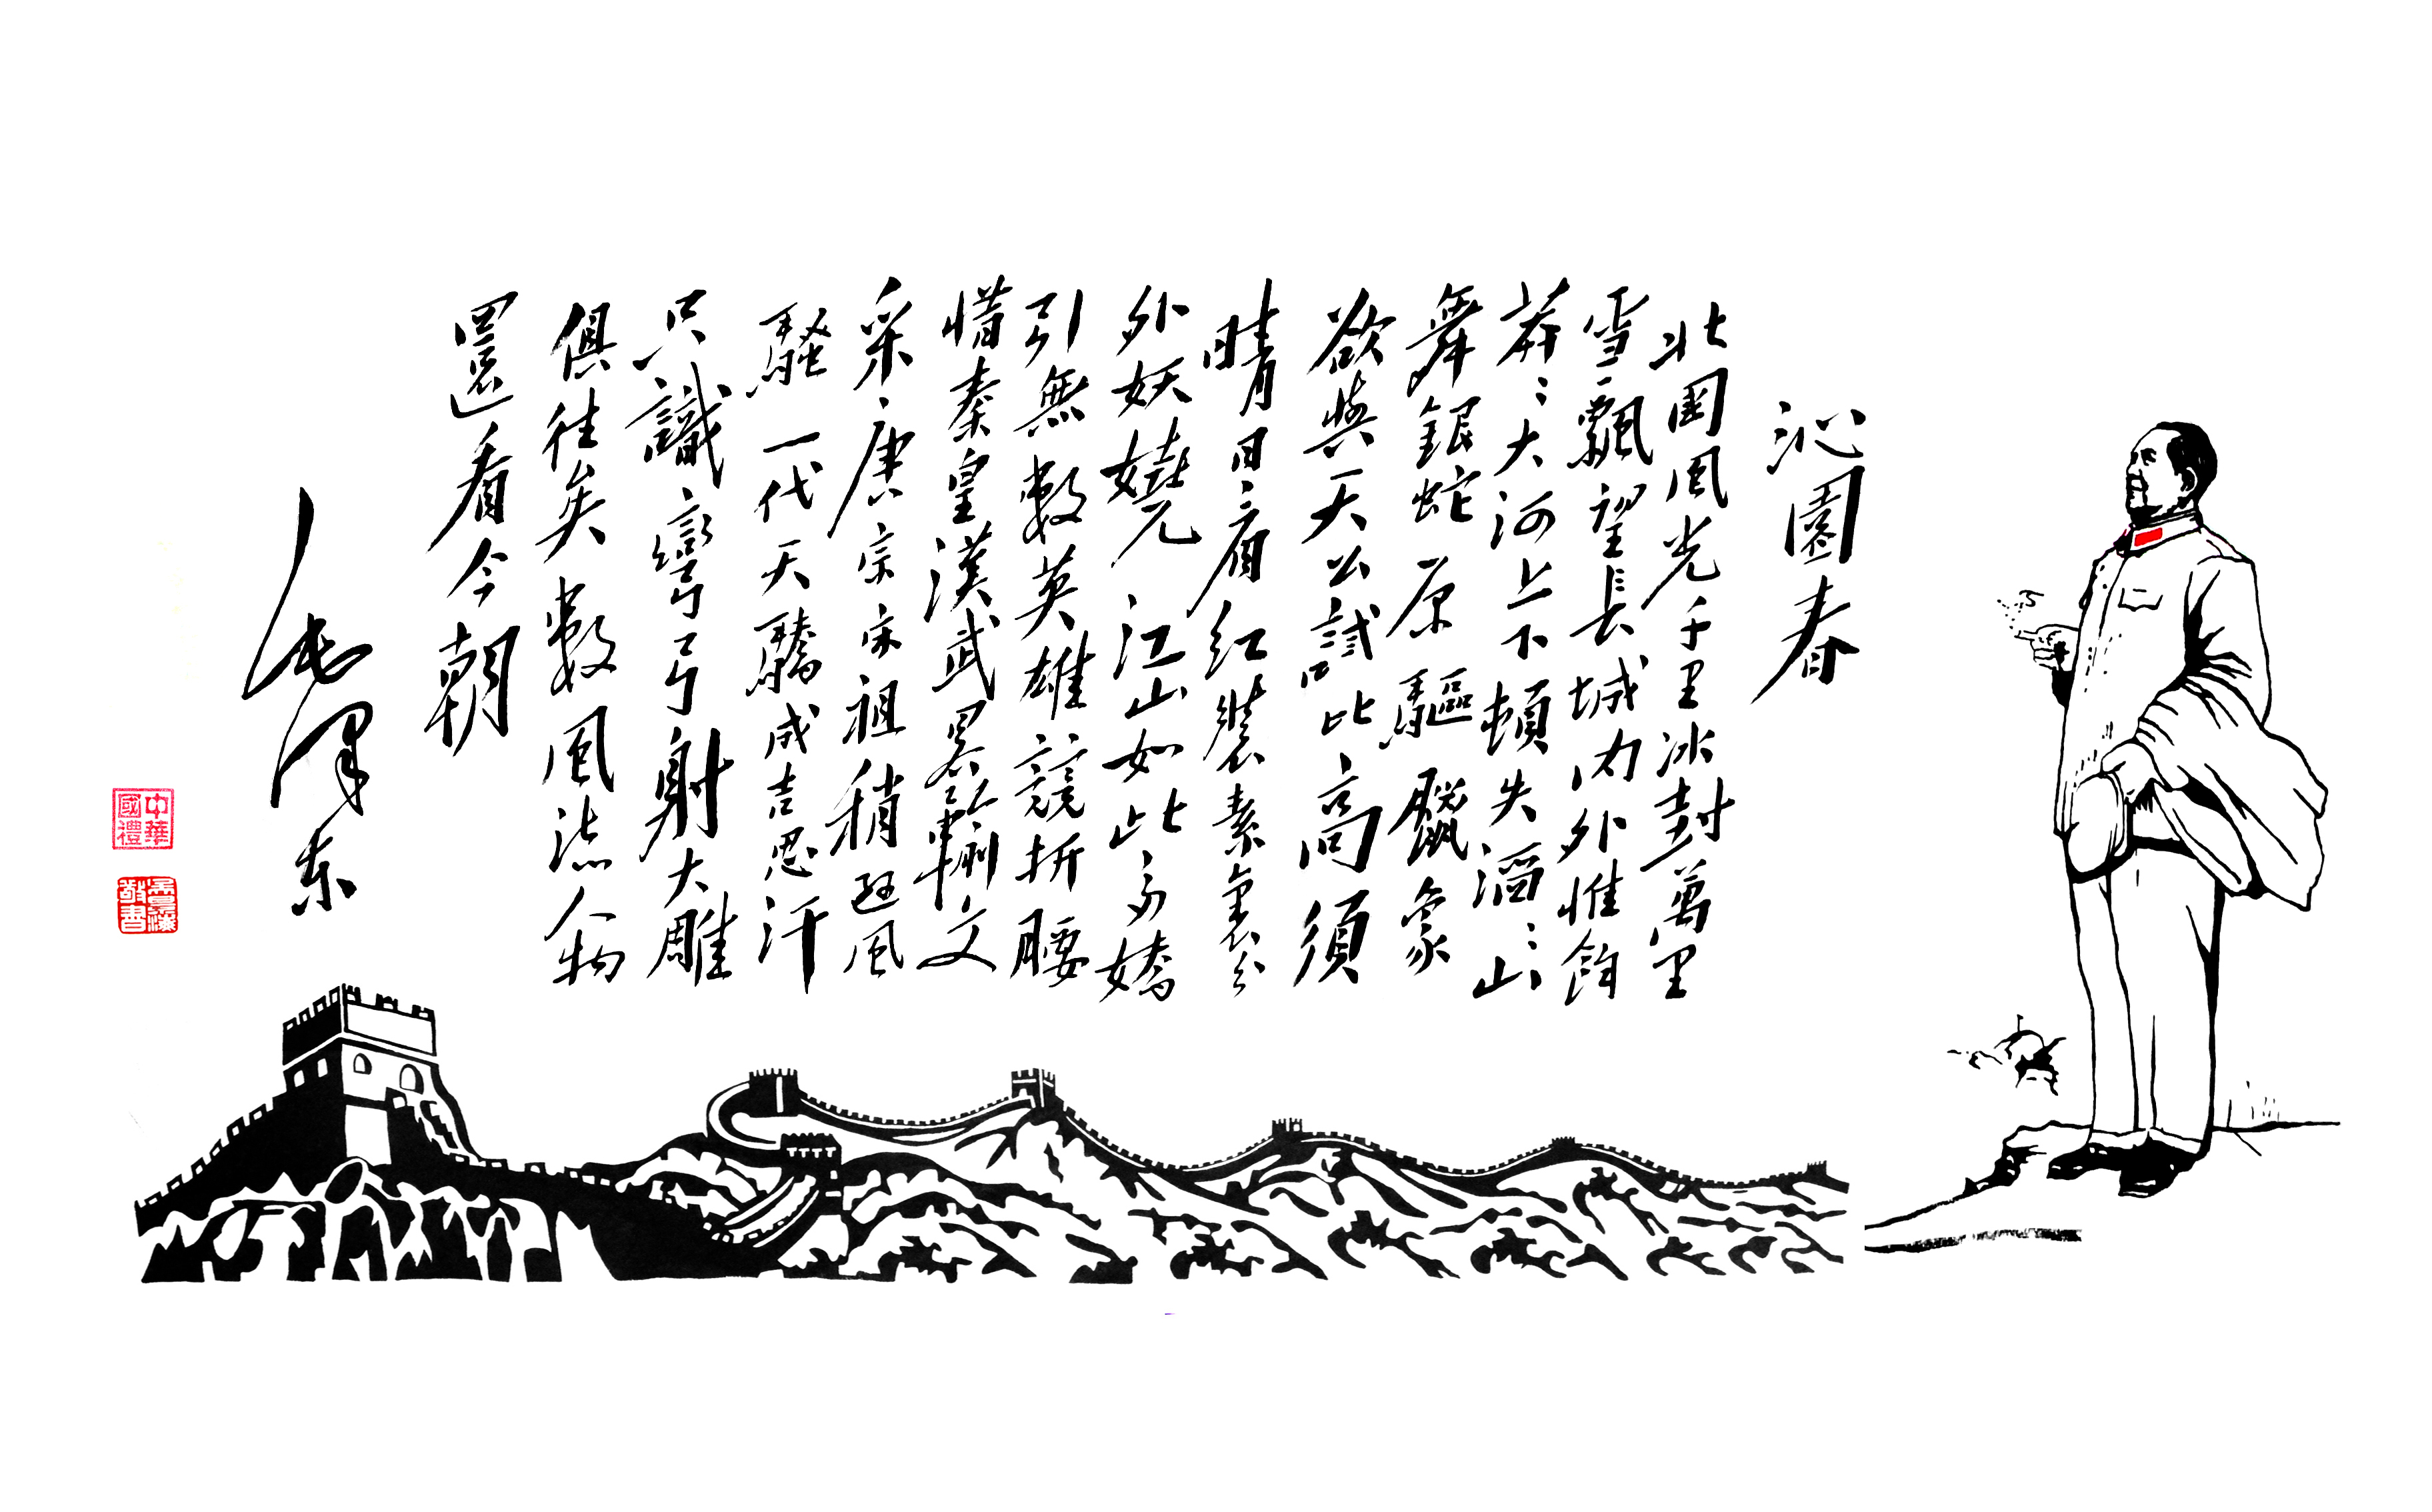 沁園春
北國風光千里冰封萬里
雪飄望長城內外惟餘
莽〻大河上下頓失滔〻山
舞銀蛇原驅臘象
欲與天公試比高須
晴日看紅裝素裹分
外妖嬈江山如此多嬌
引無數英雄競折腰
惜秦皇漢武畧輸文
采唐宗宋祖稍遜風
騷一代天驕成吉思汗
只識彎弓射大雕
俱往矣數風流人物
還看今朝
毛澤东
中華國禮
敬書